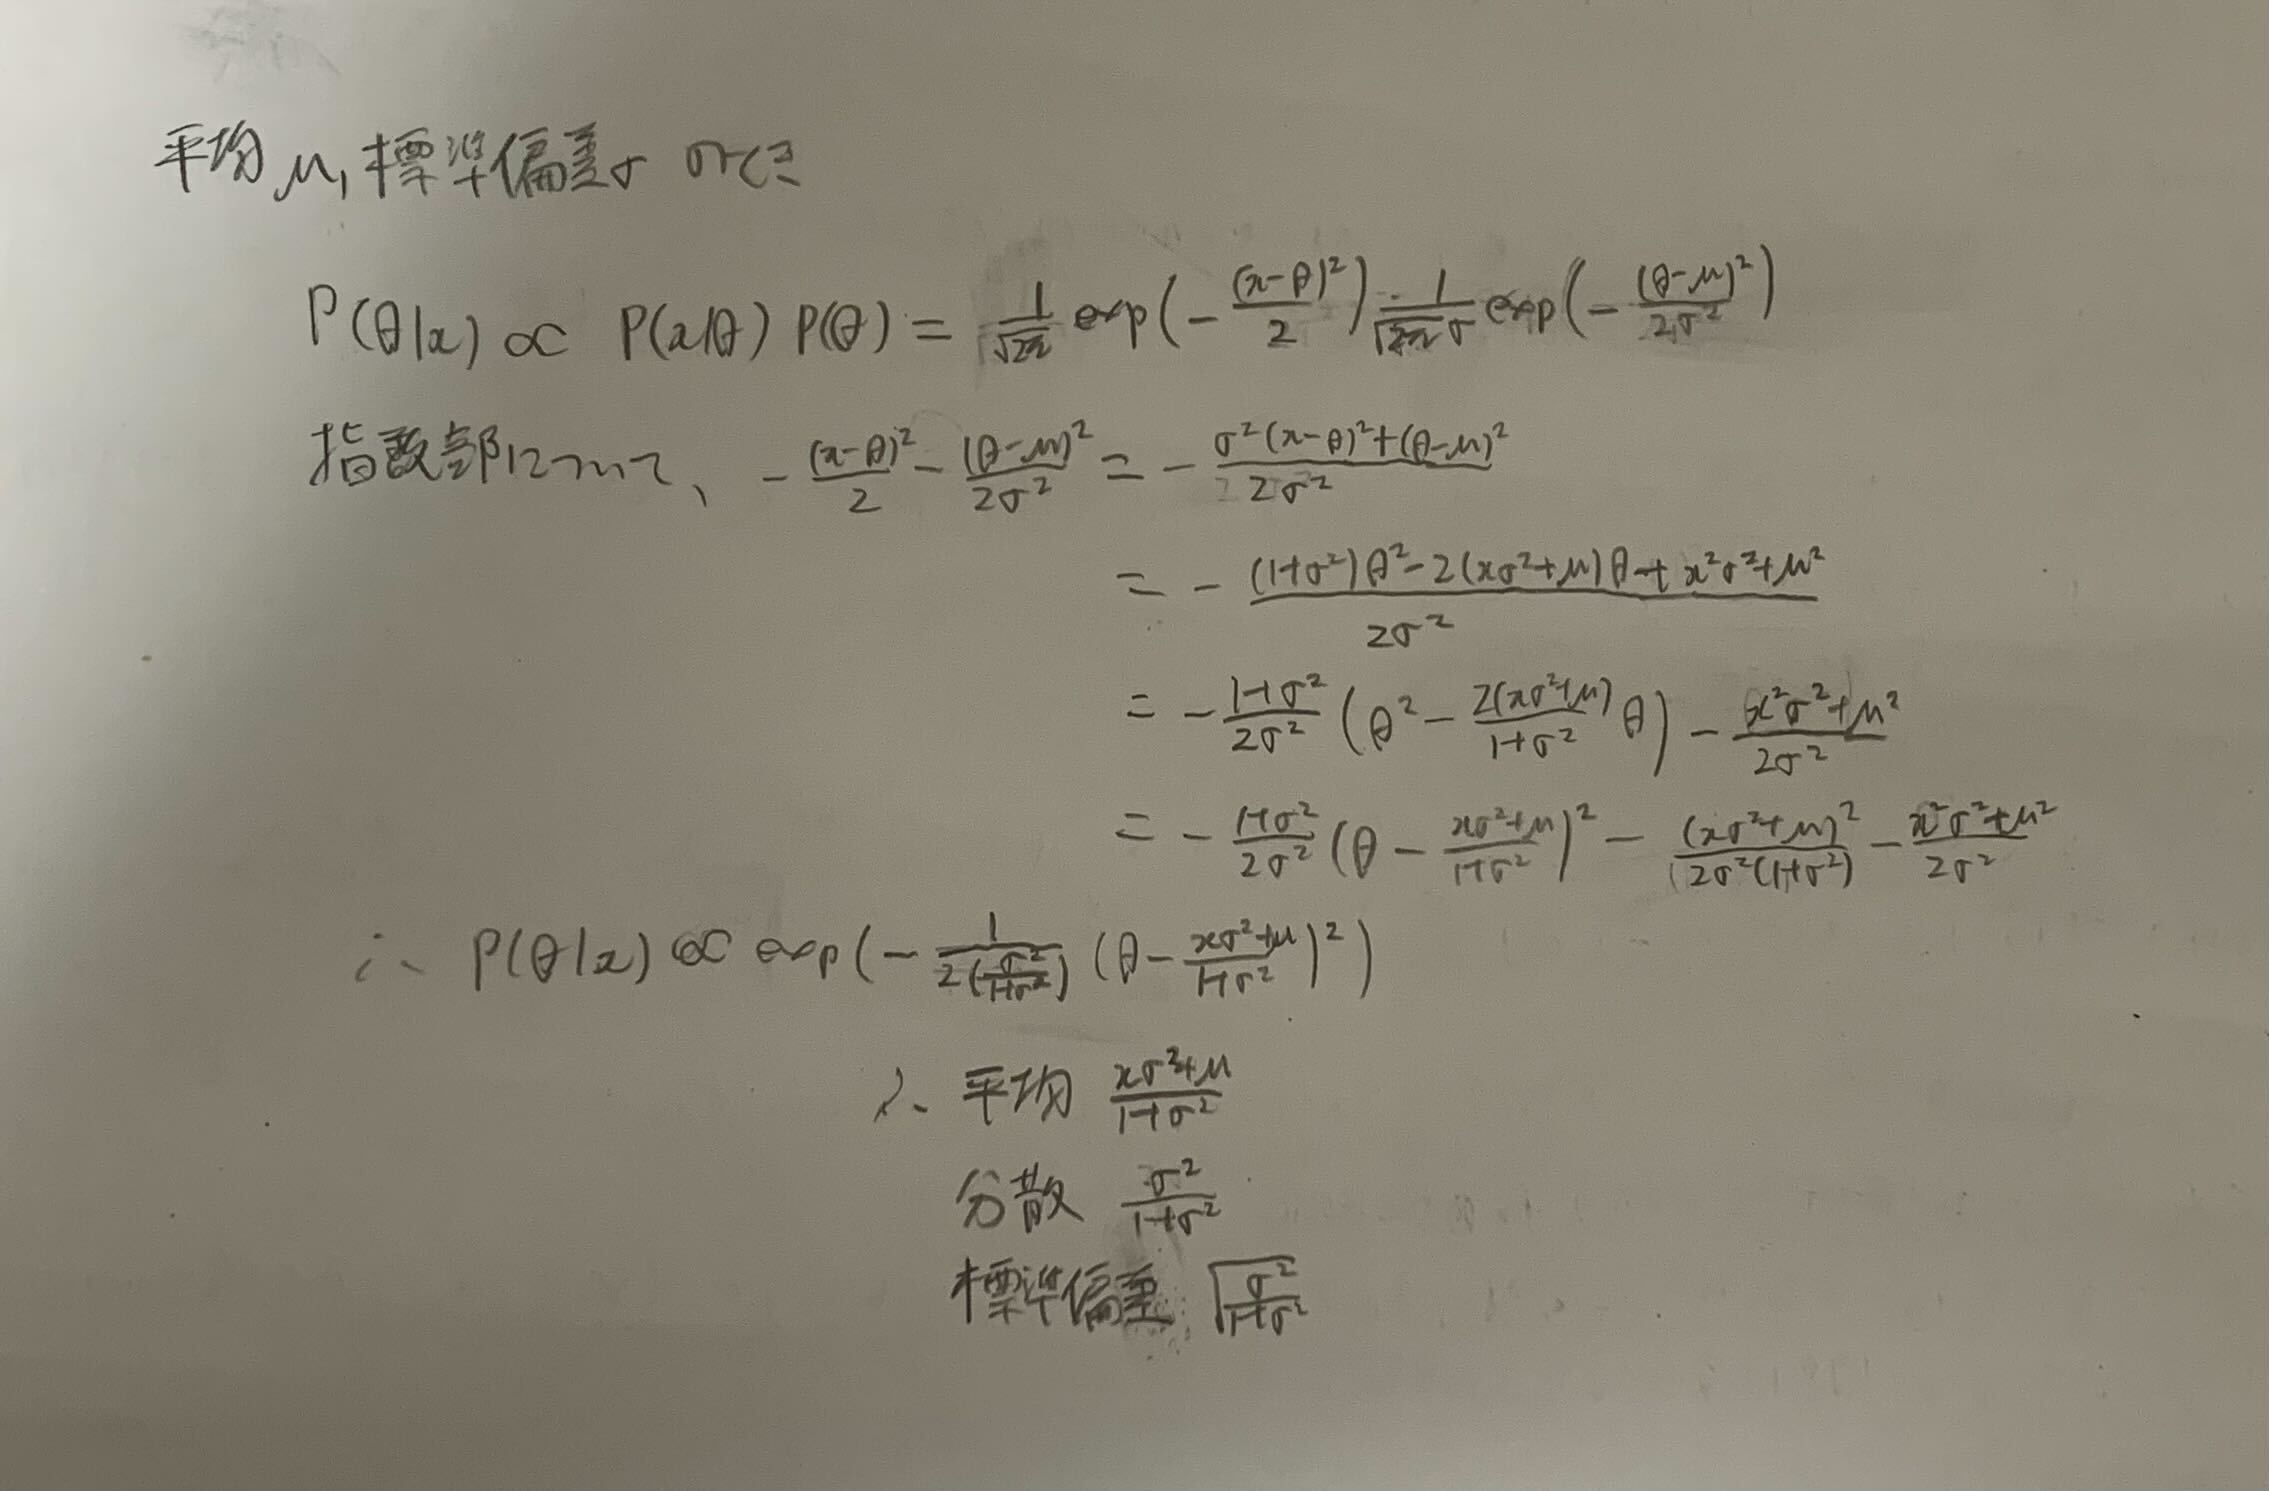 平均μ, 標準偏差σ のとき
P(θ|x) ∝ P(x|θ) P(θ) = \frac{1}{\sqrt{2π}} exp(-\frac{(x-θ)^2}{2}) \frac{1}{\sqrt{2π}σ} exp(-\frac{(θ-μ)^2}{2σ^2})
指数部について、 -\frac{(x-θ)^2}{2} - \frac{(θ-μ)^2}{2σ^2} = -\frac{σ^2(x-θ)^2+(θ-μ)^2}{2σ^2}
= -\frac{(1+σ^2)θ^2-2(xσ^2+μ)θ+x^2σ^2+μ^2}{2σ^2}
= -\frac{1+σ^2}{2σ^2}(θ^2-\frac{2(xσ^2+μ)}{1+σ^2}θ) - \frac{x^2σ^2+μ^2}{2σ^2}
= -\frac{1+σ^2}{2σ^2}(θ-\frac{xσ^2+μ}{1+σ^2})^2 - \frac{(xσ^2+μ)^2}{2σ^2(1+σ^2)} - \frac{x^2σ^2+μ^2}{2σ^2}
∴ P(θ|x) ∝ exp(-\frac{1}{2(\frac{σ^2}{1+σ^2})}(θ-\frac{xσ^2+μ}{1+σ^2})^2)
∴ 平均 \frac{xσ^2+μ}{1+σ^2}
分散 \frac{σ^2}{1+σ^2}
標準偏差 \sqrt{\frac{σ^2}{1+σ^2}}